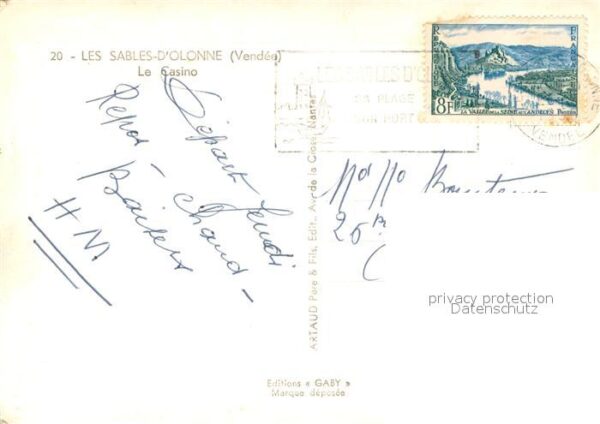 20 - LES SABLES-D'OLONNE (Vendée)
Le Casino
Départ Jeudi
Chaud -
Repos -
Baisers
H M.
ARTAUD Père & Fils, Edit., Av. de la Close, Nantes
LES SABLES D'O
SA PLAGE
SON PORT
RF
FRANCE
8F
LA VALLÉE DE LA SEINE AUX ANDELYS POSTES
VENDEE
25
privacy protection
Datenschutz
Editions « GABY »
Marque déposée